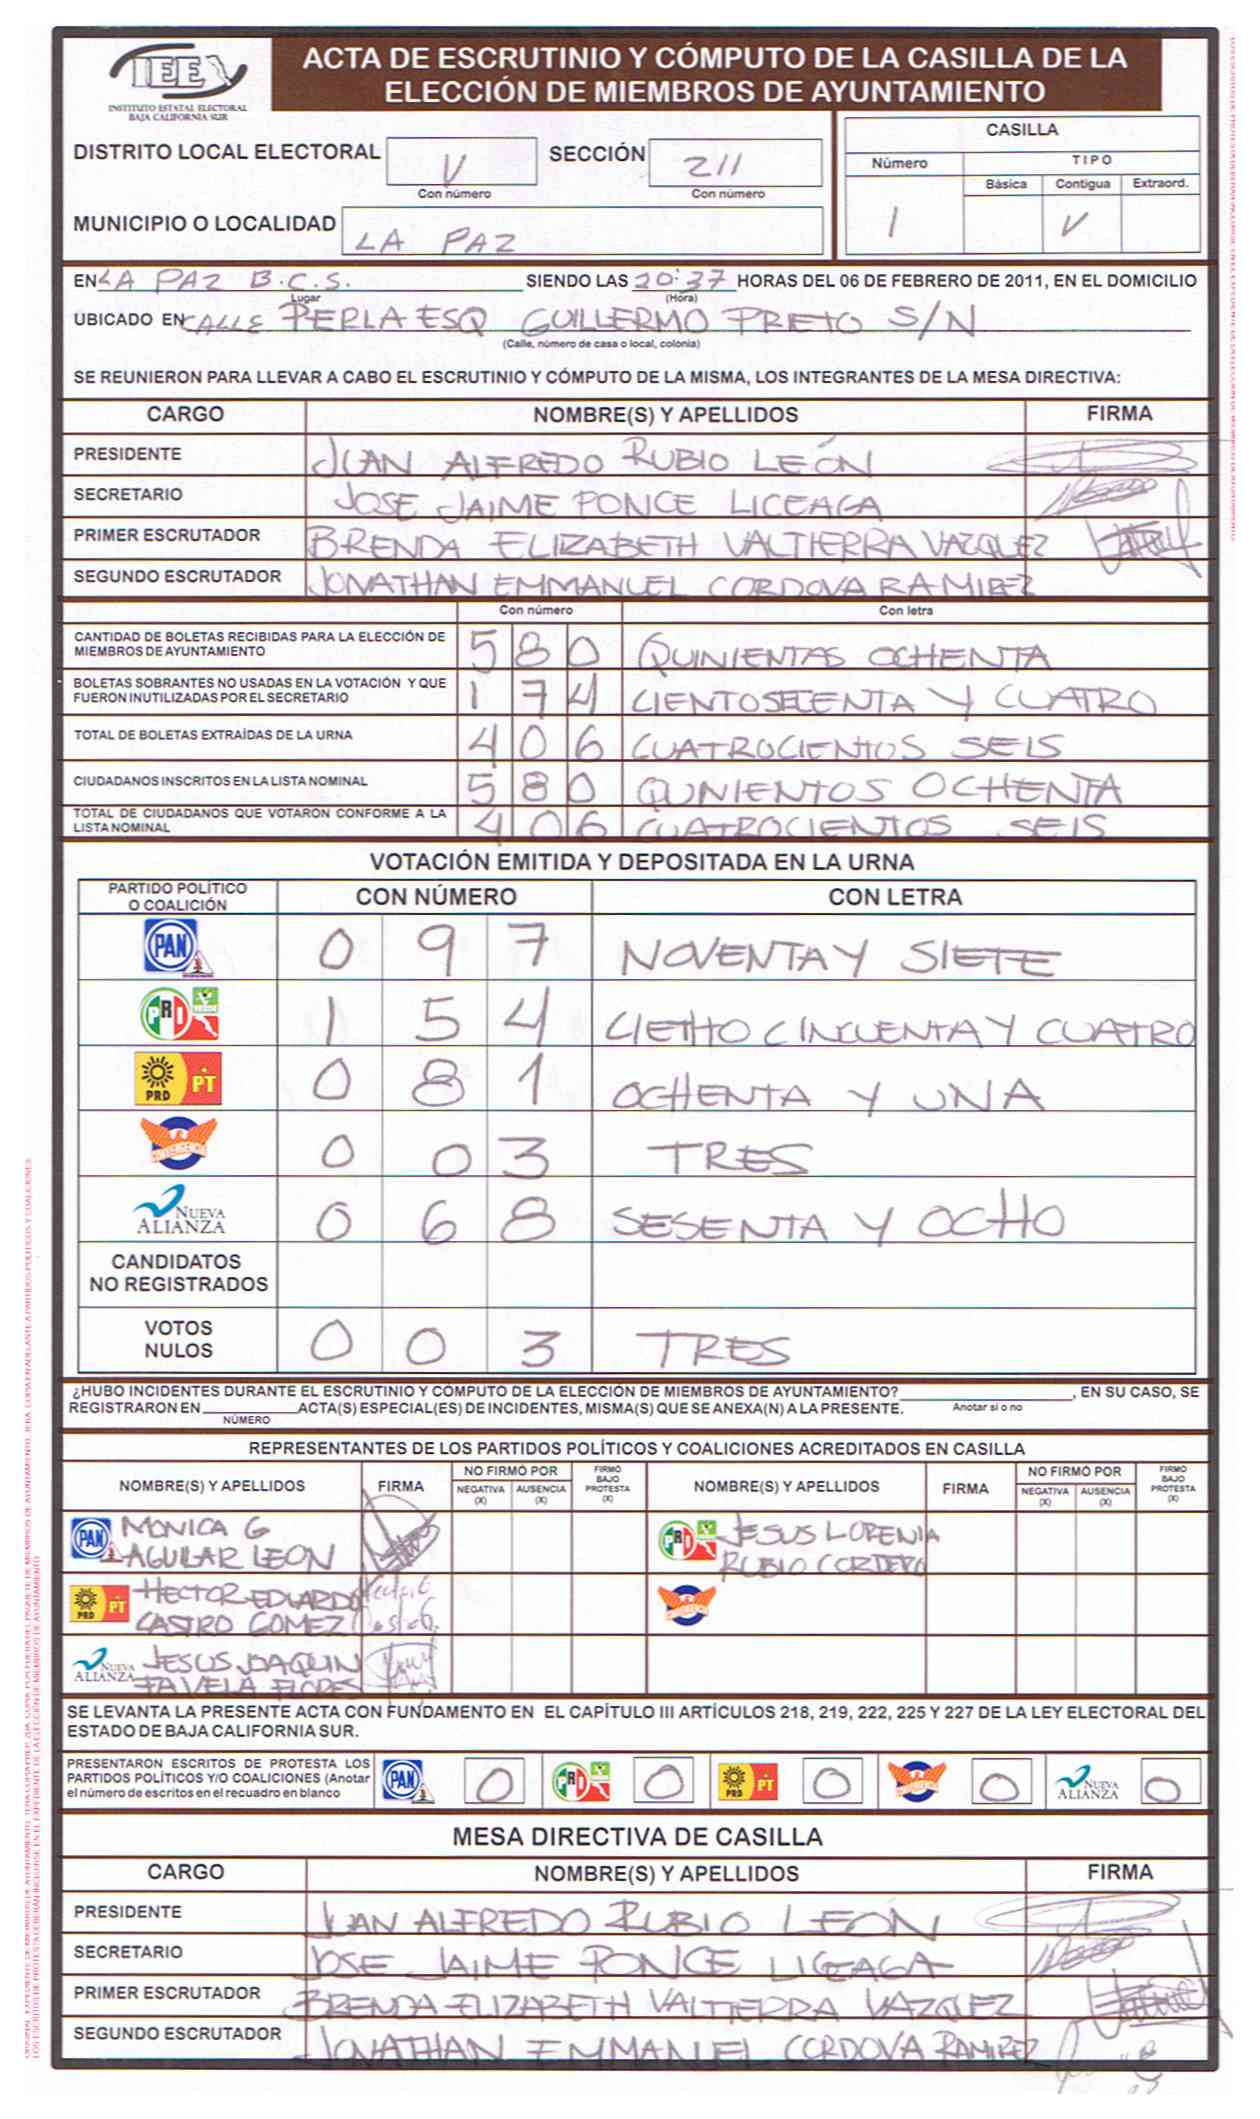 IEE
INSTITUTO ESTATAL ELECTORAL
BAJA CALIFORNIA SUR
ACTA DE ESCRUTINIO Y CÓMPUTO DE LA CASILLA DE LA
ELECCIÓN DE MIEMBROS DE AYUNTAMIENTO
DISTRITO LOCAL ELECTORAL V SECCIÓN 211
Con número Con número
MUNICIPIO O LOCALIDAD LA PAZ
CASILLA
Número TIPO
Básica Contigua Extraord.
1 V
EN LA PAZ B.C.S. SIENDO LAS 20:37 HORAS DEL 06 DE FEBRERO DE 2011, EN EL DOMICILIO
Lugar (Hora)
UBICADO EN CALLE PERLA ESQ GUILLERMO PRIETO S/N
(Calle, número de casa o local, colonia)
SE REUNIERON PARA LLEVAR A CABO EL ESCRUTINIO Y CÓMPUTO DE LA MISMA, LOS INTEGRANTES DE LA MESA DIRECTIVA:
CARGO NOMBRE(S) Y APELLIDOS FIRMA
PRESIDENTE JUAN ALFREDO RUBIO LEÓN
SECRETARIO JOSE JAIME PONCE LICEAGA
PRIMER ESCRUTADOR BRENDA ELIZABETH VALTIERRA VAZQUEZ
SEGUNDO ESCRUTADOR JONATHAN EMMANUEL CORDOVA RAMIREZ
Con número Con letra
CANTIDAD DE BOLETAS RECIBIDAS PARA LA ELECCIÓN DE
MIEMBROS DE AYUNTAMIENTO 580 QUINIENTAS OCHENTA
BOLETAS SOBRANTES NO USADAS EN LA VOTACIÓN Y QUE
FUERON INUTILIZADAS POR EL SECRETARIO 174 CIENTOSECENTA Y CUATRO
TOTAL DE BOLETAS EXTRAÍDAS DE LA URNA 406 CUATROCIENTOS SEIS
CIUDADANOS INSCRITOS EN LA LISTA NOMINAL 580 QUNIENTOS OCHENTA
TOTAL DE CIUDADANOS QUE VOTARON CONFORME A LA
LISTA NOMINAL 406 CUATROCIENTOS SEIS
VOTACIÓN EMITIDA Y DEPOSITADA EN LA URNA
PARTIDO POLÍTICO
O COALICIÓN CON NÚMERO CON LETRA
PAN 0 9 7 NOVENTA Y SIETE
PRI VERDE 1 5 4 CIETHO CINCUENTA Y CUATRO
PRD PT 0 8 1 OCHENTA Y UNA
CONVERGENCIA 0 0 3 TRES
NUEVA ALIANZA 0 6 8 SESENTA Y OCHO
CANDIDATOS
NO REGISTRADOS
VOTOS
NULOS 0 0 3 TRES
¿HUBO INCIDENTES DURANTE EL ESCRUTINIO Y CÓMPUTO DE LA ELECCIÓN DE MIEMBROS DE AYUNTAMIENTO? , EN SU CASO, SE
REGISTRARON EN ACTA(S) ESPECIAL(ES) DE INCIDENTES, MISMA(S) QUE SE ANEXA(N) A LA PRESENTE. Anotar si o no
NÚMERO
REPRESENTANTES DE LOS PARTIDOS POLÍTICOS Y COALICIONES ACREDITADOS EN CASILLA
NOMBRE(S) Y APELLIDOS FIRMA NO FIRMÓ POR NEGATIVA (X) AUSENCIA (X) FIRMÓ BAJO PROTESTA (X) NOMBRE(S) Y APELLIDOS FIRMA NO FIRMÓ POR NEGATIVA (X) AUSENCIA (X) FIRMÓ BAJO PROTESTA (X)
PAN MONICA G PRI JESUS LORENIA
AGUILAR LEON RUBIO CORDERO
PRD PT HECTOR EDUARDO
CASTRO GOMEZ
NUEVA ALIANZA JESUS JOAQUIN
FAVELA FLORES
SE LEVANTA LA PRESENTE ACTA CON FUNDAMENTO EN EL CAPÍTULO III ARTÍCULOS 218, 219, 222, 225 Y 227 DE LA LEY ELECTORAL DEL
ESTADO DE BAJA CALIFORNIA SUR.
PRESENTARON ESCRITOS DE PROTESTA LOS
PARTIDOS POLÍTICOS Y/O COALICIONES (Anotar
el número de escritos en el recuadro en blanco
PAN 0 PRI 0 PRD PT 0 0 NUEVA ALIANZA 0
MESA DIRECTIVA DE CASILLA
CARGO NOMBRE(S) Y APELLIDOS FIRMA
PRESIDENTE JUAN ALFREDO RUBIO LEON
SECRETARIO JOSE JAIME PONCE LICEAGA
PRIMER ESCRUTADOR BRENDA ELIZABETH VALTIERRA VAZQUEZ
SEGUNDO ESCRUTADOR JONATHAN EMMANUEL CORDOVA RAMIREZ